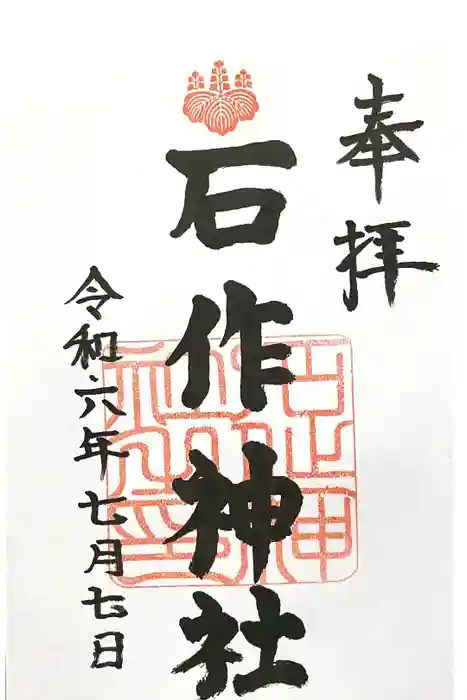 奉拝
石作神社
令和六年七月七日